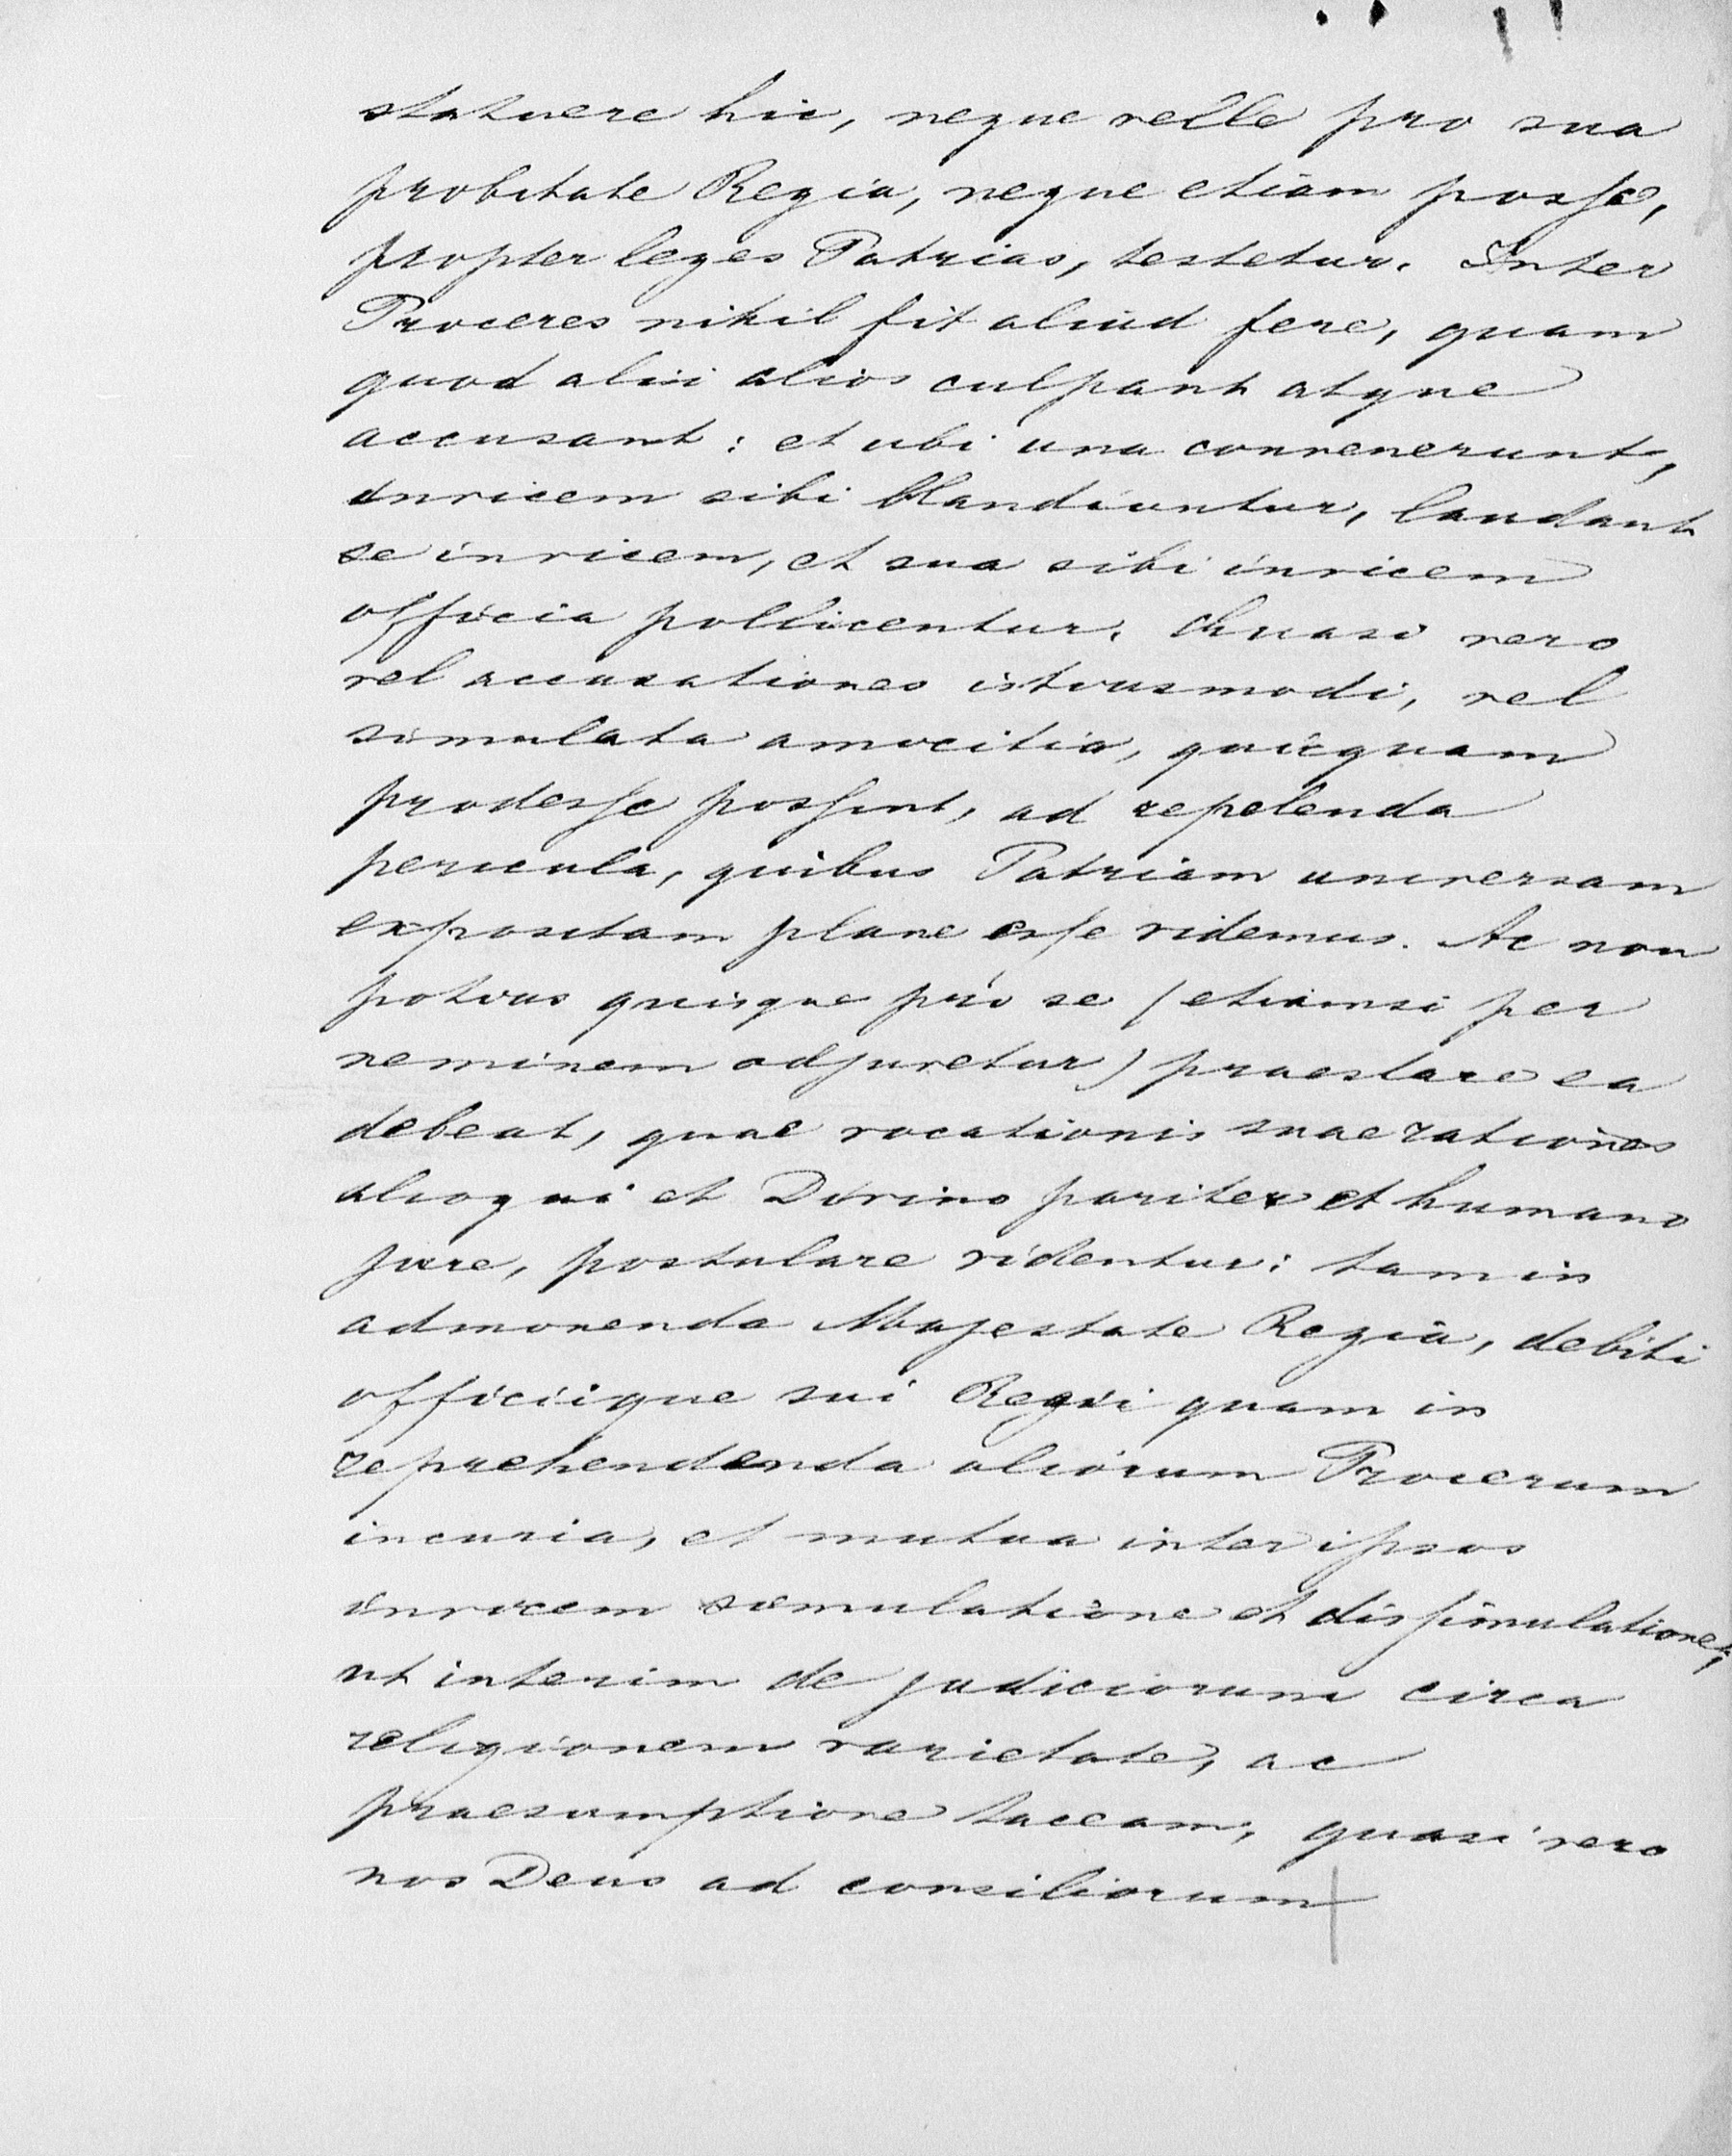 statuere hic, neque velle pro sua
probitate Regia, neque etiam posse,
propter leges Patrias, testetur. Inter
Proceres nihil fit aliud fere, quam
quod alii alios culpant atque
accusant: et ubi una convenerunt,
invicem sibi blandiuntur, laudant
se invicem, et sua sibi invicem
officia pollicentur. Quasi vero
vel accusationes istiusmodi, vel
simulata amicitia, quicquam
prodesse possint, ad repelenda
pericula, quibus Patriam universam
expositam plane esse videmus. Ac non
potius quisque pro se (etiamsi per
neminem adjuvetur) praestare ea
debeat, quae vocationis suae rationes
alioqui et Divino pariter et humano
jure, postulare videntur: tam in
admonenda Majestate Regia, debiti
officiique sui Regii quam in
reprehendenda aliorum Procerum
incuria, et mutua inter ipsos
invicem simulatione et dissimulatione,
ut interim de judiciorum circa
religionem varietate, ac
praesumptione taceam, quasi vero
nos Deus ad consiliorum